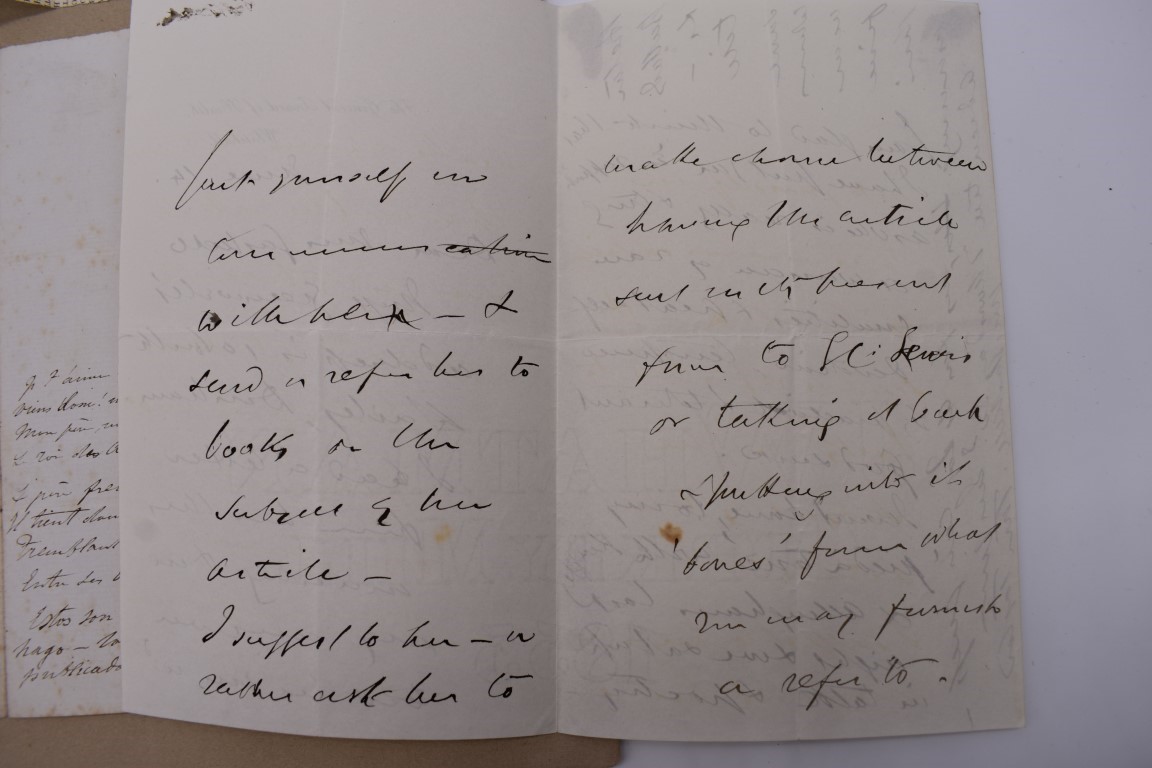 put yourself in
communication
with her – &
send or refer her to
books on the
subject of her
article –
I suggest to her – or
rather ask her to
make choice between
having the article
sent in its present
form to G C: Lewis
or taking it back
& putting into it
'bones' from what
you may furnish
or refer to .
Mon père,
Il tient dans
Tremblant
Entre ses
Estos son
pago –
publicado